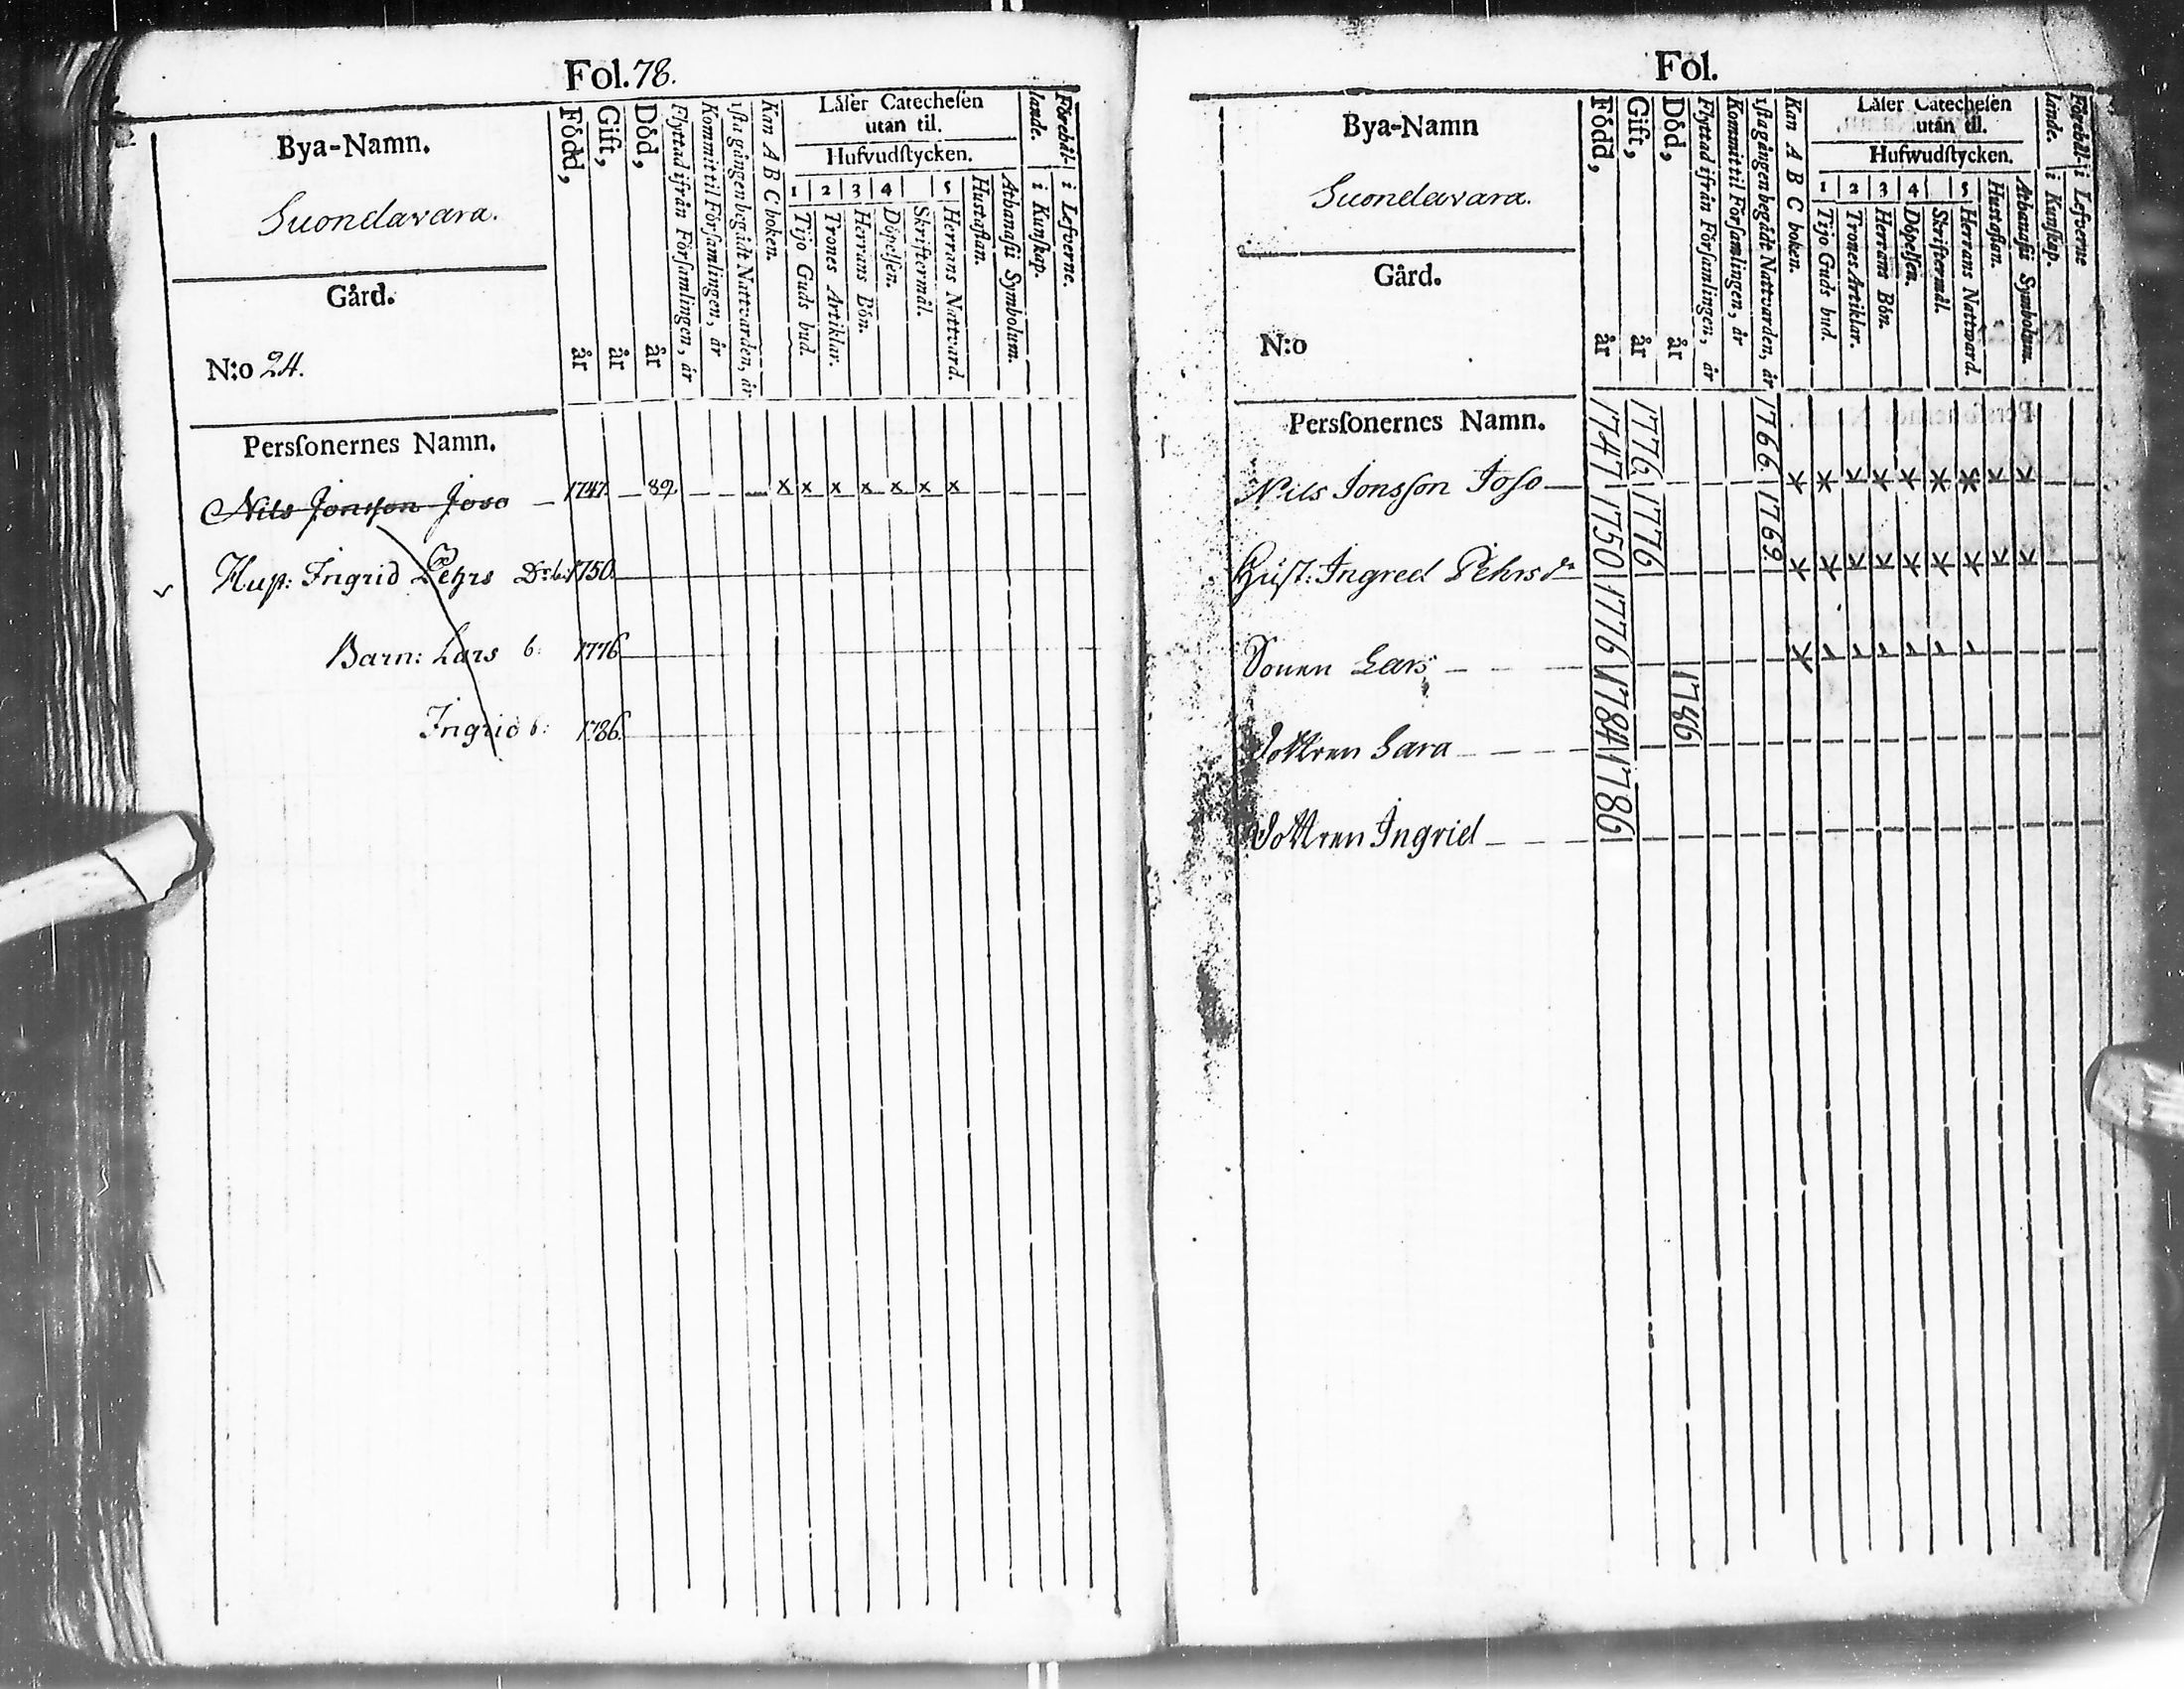 Fol. 78.
Bya-Namn.
Suondavara.
Gård.
N:o 24.
Född, år
Gift, år
Död, år
Flyttad ifrån Församlingen, år
Kommit til Församlingen, år
1sta gången begådt Nattvarden, år
Kan A B C boken.
Läser Catechesen
utan til.
Hufvudstycken.
1 2 3 4 5
Tijo Guds bud.
Trones Artiklar.
Herrans Bön.
Döpelsen.
Skriftermål.
Herrans Nattvard.
Hustaflan.
Athanasii Symbolum.
Förehål-
lande.
i Kunskap.
i Lefverne.
Perssonernes Namn.
Nils Jonsson Joso 1747. 89 x x x x x x x
Hust: Ingrid Pehrs Dr b: 1750.
Barn: Lars b: 1776
Ingrid b: 1786.
Fol.
Bya-Namn
Suondavara.
Gård.
N:o
Född, år
Gift, år
Död, år
Flyttad ifrån Församlingen, år
Kommit til Församlingen, år
1sta gången begådt Nattvarden, år
Kan A B C boken.
Läser Catechesen
utan til.
Hufwudstycken.
1 2 3 4 5
Tijo Guds bud.
Trones Artiklar.
Herrans Bön.
Döpelsen.
Skriftermål.
Herrans Nattward.
Hustaflan.
Athanasii Symbolum.
Förehål-
lande.
i Kunskap.
i Lefverne
Perssonernes Namn.
Nils Jonsson Joso 1747 1776 1766 x x x x x x x x x
Hust: Ingred Pehrs dr 1750 1776 1769 x x x x x x x x x
Sonen Lars 1776 x
Dottren Sara 1784 1786
Dottren Ingrid 1786